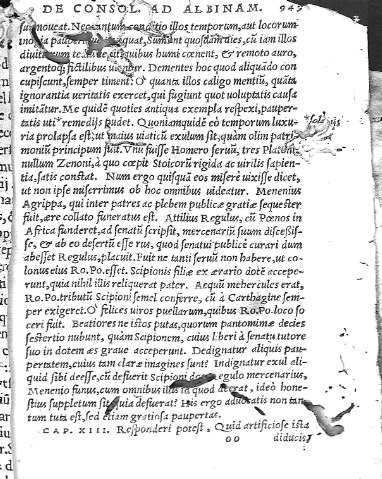 DE CONSOL. AD ALBINAM. 945
conditio illos temporum, aut locorum
inopia pauperibus Sumant quosdam dies, cũ iam illos
diuitiarum te quibus humi cœnent, & remoto auro,
argentoq; fictilibus Dementes hoc quod aliquãdo con
cupiscunt, semper timent: O quanta illos caligo mentiũ, quãta
ignorantia veritatis exercet, qui fugiunt quot voluptatis causa
imitãtur. Me quidẽ quoties antiqua exempla respexi, pauper-
tatis remedijs pudet. Quoniamquidẽ eò temporum luxu-
ria prolapsa est; ut maius exulum sit, quàm olim patri
monium principum fuit. Vnũ fuisse Homero seruũ, tres Platoni,
nullum Zenoni, à quo cœpit Stoicorũ rigida ac uirilis sapien-
tia, satis constat. Num ergo quisquã eos miserè uixisse dicet,
ut non ipse miserrimus ob hoc omnibus uideatur. Menenius
Agrippa, qui inter patres ac plebem publicæ gratiæ sequester
fuit, ære collato funeratus est. Attilius Regulus, cũ Pœnos in
Africa funderet, ad senatũ scripsit, mercenariũ suum discessis-
se, & ab eo desertũ esse rus, quod senatui publicè curari dum
abesset Regulus, placuit. Fuit ne tanti seruũ non habere, ut co
lonus eius Ro. Po. esset. Scipionis filiæ ex ærario dotẽ accepe-
runt, quia nihil illis reliquerat pater. Aequũ mehercules erat,
Ro. Po. tributũ Scipioni semel conferre, cũ à Carthagine sem-
per exigeret. O felices uiros puellarum, quibus Ro. Po. loco so
ceri fuit. Beatiores ne istos putas, quorum pantomimæ decies
sestertio nubunt, quàm Scipionem, cuius liberi à senatu tutore
suo in dotem æs graue acceperunt. Dedignatur aliquis pau-
pertatem, cuius tam claræ imagines sunt? Indignatur exul ali-
quid sibi deesse, cũ defuerit Scipioni dos, Regulo mercenarius,
Menenio funus, cum omnibus illis id quod deerat, ideò hone-
stius suppletum sit, quia defuerat? His ergo aduocatis non tan
tum tuta est, sed etiam gratiosa paupertas.
CAP. XIII. Responderi potest, Quid artificiose ista
oo diducis,